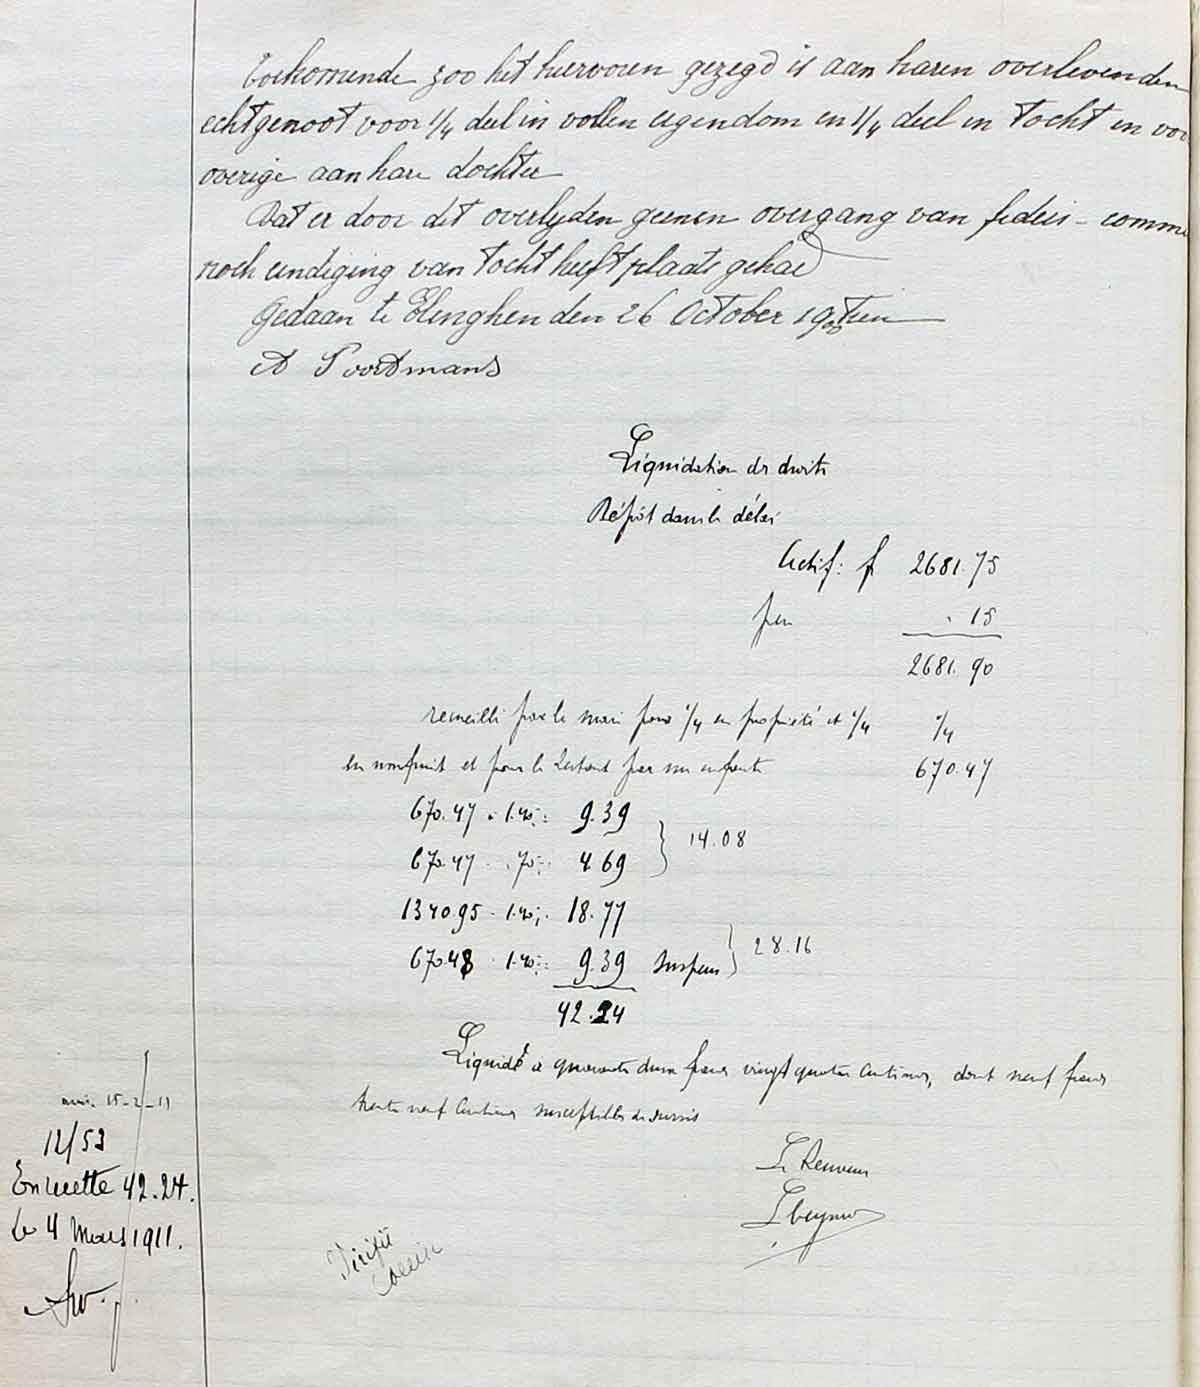 Toekomende zoo het hiervoren gezegd is aan haren overlevenden
echtgenoot voor 1/4 deel in vollen eigendom en 1/4 deel in tocht en voor
overige aan hare dochter
Dat er door dit overlyden geenen overgang van fideis-comme
noch eindiging van tocht heeft plaats gehad
Gedaan te Elinghen den 26 October 19 tien
A Poortmans
Liquidation des droits
Dépôt dans le délai
Actif: f 2681.75
. 15
2681.90
recueilli par le mari pour 1/4 en propriété et 1/4 1/4
en usufruit et pour le restant par un enfant 670.47
670.47 . 1.40 : 9.39
14.08
670.47 . .70 : 4.69
1340.95 . 1.40 : 18.77
670.48 . 1.40 : 9.39 suspens
28.16
42.24
Liquidé à quarante deux francs vingt quatre centimes, dont neuf francs
trente neuf centimes susceptibles de sursis
Le Receveur
15-2-11
12/53
En recette 42.24.
Le 4 Mars 1911.
Vérifié